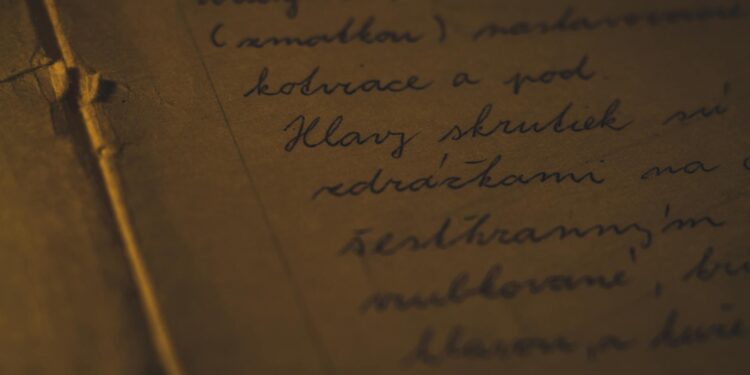 (zmatkou) nastavovanie
kotviace a pod.
Hlavy skrutiek sú
zdrážkami na
šesthranným
vrubkované,
hlavou, a